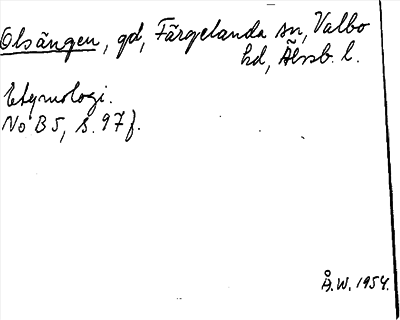 Olsängen, gd, Färgelanda sn, Valbo
hd, Älvsb. l.
Etymologi.
No B 5, s. 97 f.
Å.W. 1954.